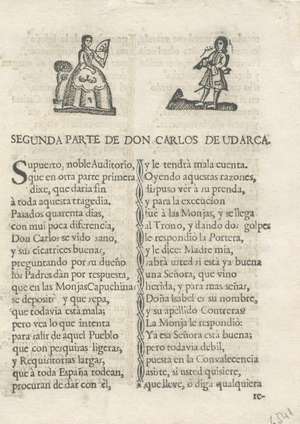 SEGUNDA PARTE DE DON CARLOS DE UDARCA.
Supuesto, noble Auditorio,
que en otra parte primera
dixe, que daria fin
à toda aquesta tragedia.
Pasados quarenta dias,
con mui poca diferencia,
Don Carlos se vido sano,
y sus cicatrices buenas,
preguntando por su dueño
los Padres dan por respuesta,
que en las Monjas Capuchinas
se deposito y que sepa,
que todavia està mala;
pero vea lo que intenta
para salir de aquel Pueblo
que con pesquiras ligeras,
y Requisitorias largas,
que à toda España rodean,
procuran dar con èl,
y le tendrà mala cuenta.
Oyendo aquestas razones,
dispuso ver à su prenda,
y para la execucion
fue à las Monjas, y se llega
al Trono, y dando dos golpes
le respondiò la Portera,
y le dice: Madre mia,
sabrà usted si està ya buena
una Señora, que vino
herida, y para mas señas,
Doña Isabel es su nombre,
y su apellido Contreras.
La Monja le respondiò:
Ya esa Señora està buena;
pero todavia debil,
puesta en la Convalecencia
asiste, si usted quisiere,
que lleve, ò diga qualquiera
re-